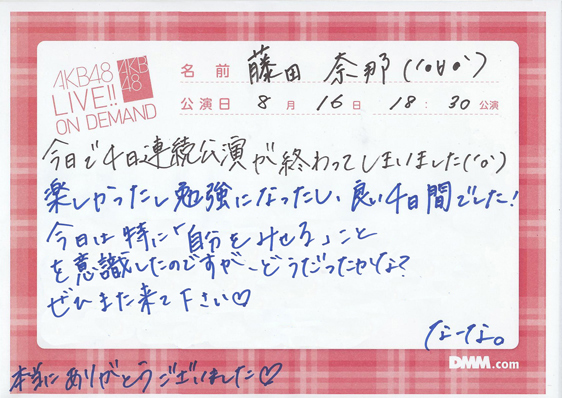 AKB48
LIVE!!
ON DEMAND
AKB
48
名 前 藤田 奈那('o'∀'o')
公演日 8 月 16 日 18 : 30 公演
今日で4日連続公演が終わってしまいました('o')
楽しかったし勉強になったし、良い4日間でした!
今日は特に「自分をみせる」こと
を意識したのですが…どうだったかな?
ぜひまた来て下さい♡
なーな。
DMM.com
本当にありがとうございました♡